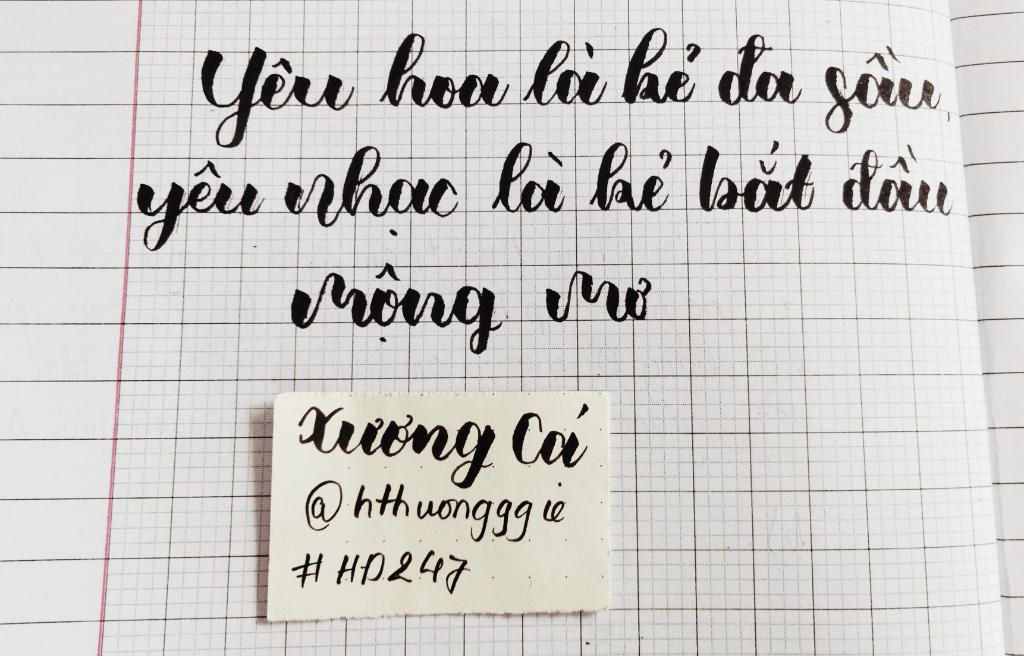 Yêu hoa là kẻ đa sầu,
yêu nhạc là kẻ bắt đầu
mộng mơ
Xương Cá
@hthuongggie
#HD247